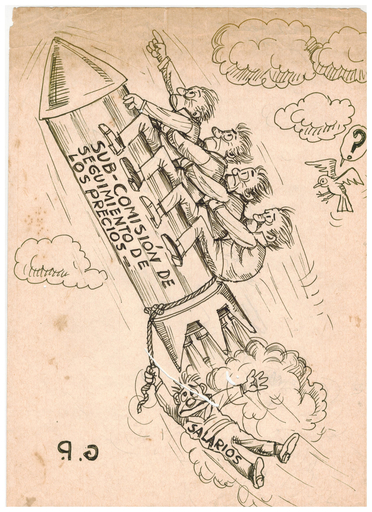 ?
SUB-COMISIÓN DE
SEGUIMIENTO DE
LOS PRECIOS-
SALARIOS